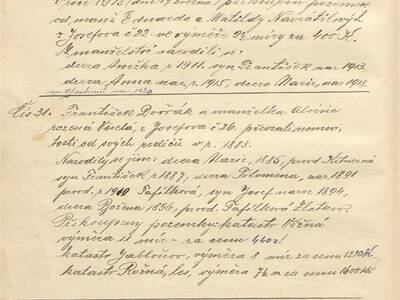 V roce 1913/dni 17. května/přikoupen pozemek
od manž. Eduarda a Matildy Navrátilových
z Josefova č 22. ve výměře 2½ míry za 400 K.
Z manželství narodili se:
dcera Anežka, r. 1911. syn František, nar 1913.
dcera Anna nar, r. 1915, dcera Marie, nar 1918.
nar. 1920
Čís 31. František Dvořák a manželka Aloisie
rozená z Josefova č 26. převzali nemovi,
tosti od svých rodičů v r. 1883.
Narodily se jim: dcera Marie, 1885, provd.
syn František, r 1887; dcera Filomena, nar. 1891
provd, r 1910 Fafílková, syn Josef nar. 1894,
dcera Božena 1896, provd. Fafílková
Přikoupeny pozemky: katastr Rožná
výměra 11 mír - za cenu 440 zl
katastr Jabloňov, výměra 8 mír za cenu 1210 K
katastr Rožná, les, výměra 7½ m za cenu 1600 Kč